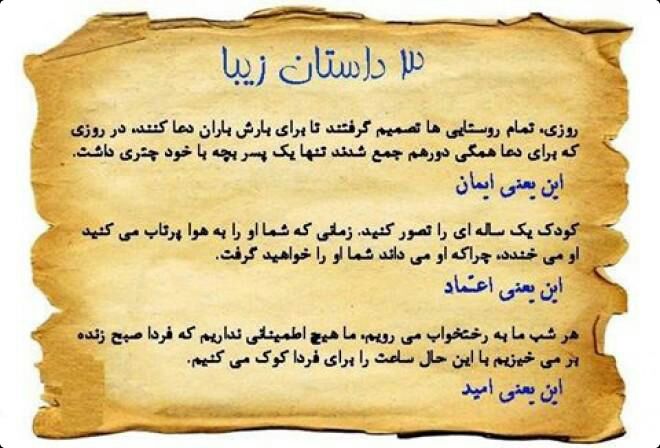 ۳ داستان زیبا
روزی، تمام روستایی ها تصمیم گرفتند تا برای بارش باران دعا کنند، در روزی
که برای دعا همگی دورهم جمع شدند تنها یک پسر بچه با خود چتری داشت.
این یعنی ایمان
کودک یک ساله ای را تصور کنید. زمانی که شما او را به هوا پرتاب می کنید
او می خندد، چراکه او می داند شما او را خواهید گرفت.
این یعنی اعتماد
هر شب ما به رختخواب می رویم، ما هیچ اطمینانی نداریم که فردا صبح زنده
بر می خیزیم با این حال ساعت را برای فردا کوک می کنیم.
این یعنی امید